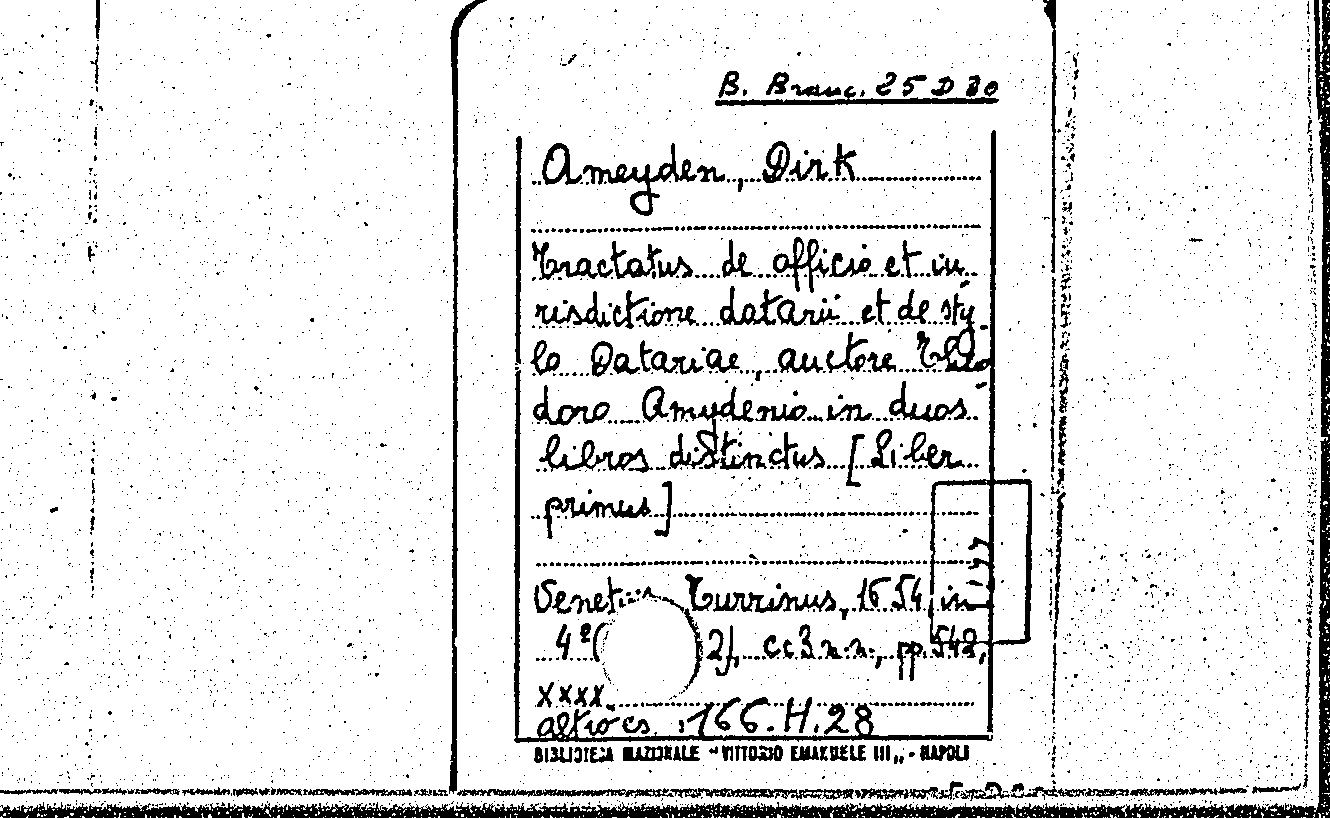 B. Branc. 25 D 80
Ameyden, Dirk
Tractatus de officio et iu-
risdictione datarii et de sty-
lo Datariae, auctore Theo-
doro Amydenio in duos
libros distinctus [Liber
primus]
Venetiis, Turrinus, 1654, in
4º( 2), cc 3 n.n., pp. 542,
XXXX
altro es. 166.H.28
BIBLIOTECA NAZIONALE "VITTORIO EMANUELE III„ - NAPOLI